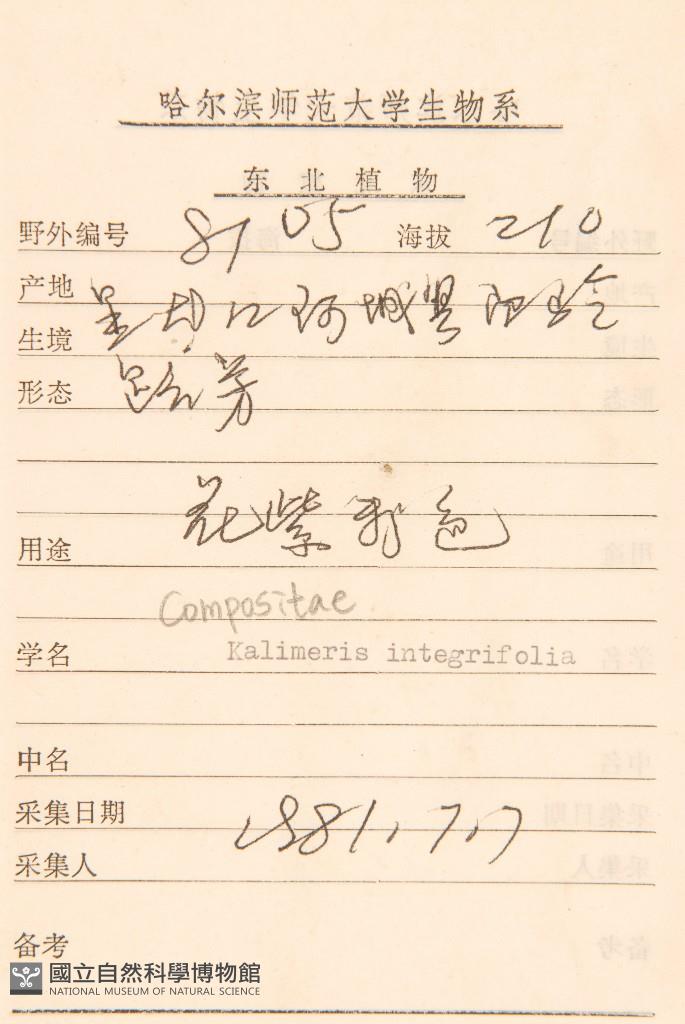 哈尔滨师范大学生物系
东北植物
野外编号 8105 海拔 210
产地 黑龙江阿城县
生境 路旁
形态
花紫 色
用途
Compositae
学名 Kalimeris integrifolia
中名
采集日期 1981.7.7
采集人
备考
國立自然科學博物館
NATIONAL MUSEUM OF NATURAL SCIENCE